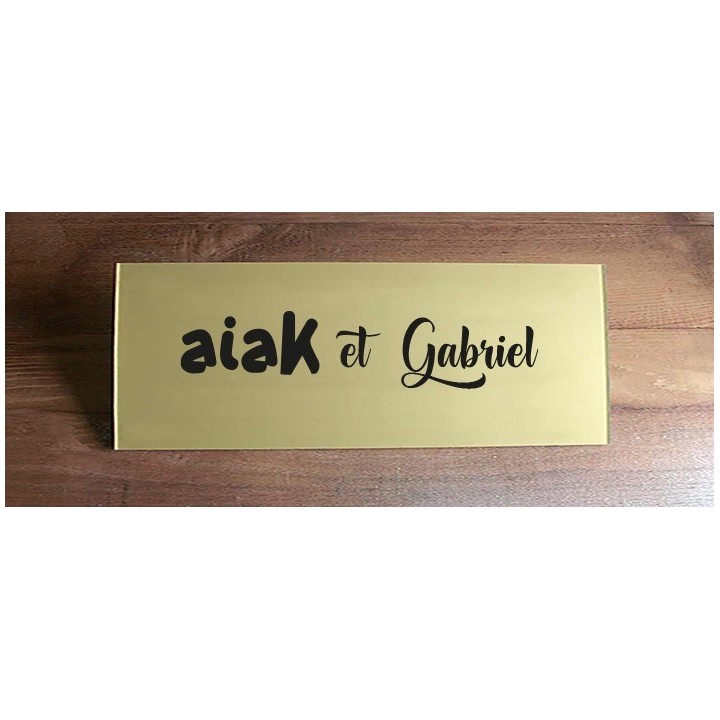 aiak et Gabriel